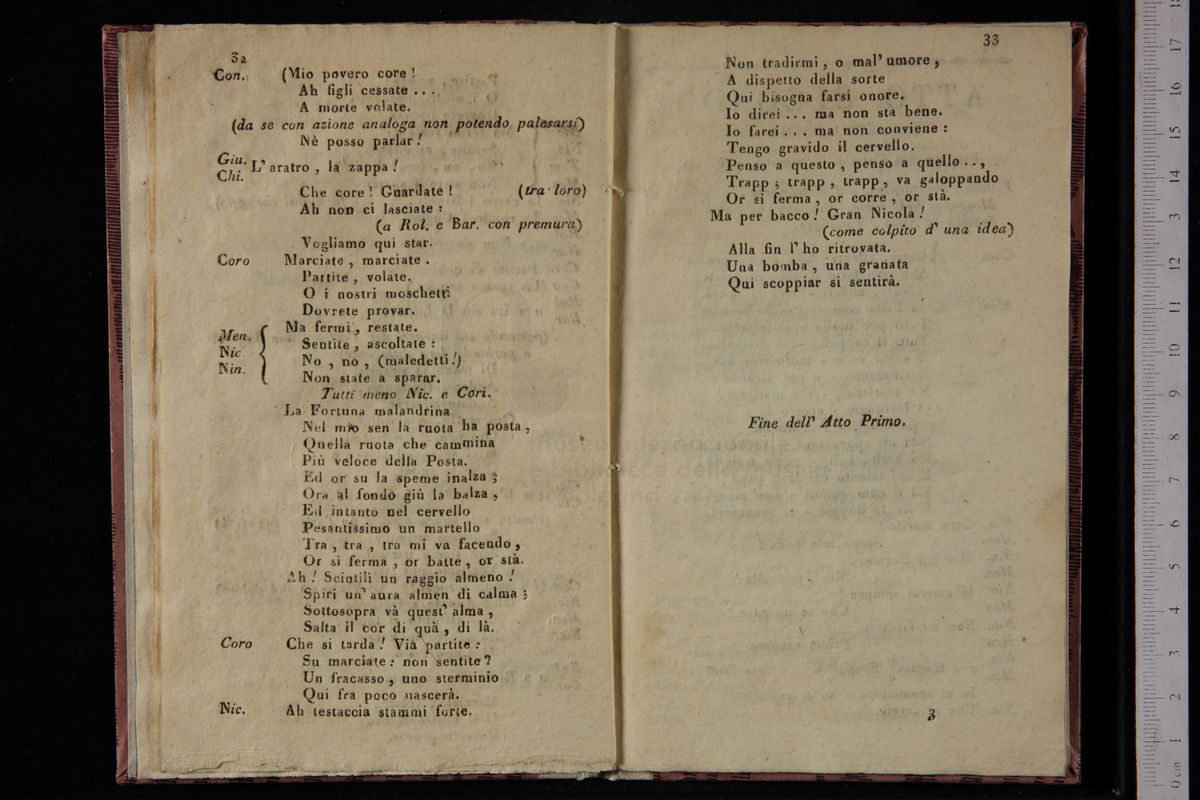 32
Con. (Mio povero core !
Ah figli cessate . . .
A morte volate.
(da se con azione analoga non potendo palesarsi)
Nè posso parlar !
Giu.
Chi. L' aratro , la zappa !
Che core ! Guardate ! (tra loro)
Ah non ci lasciate :
(a Rol. e Bar. con premura)
Vogliamo qui star.
Coro Marciate , marciate .
Partite , volate.
O i nostri moschetti
Dovrete provar.
Men. Ma fermi , restate.
Nic Sentite , ascoltate :
Nin. No , no , (maledetti !)
Non state a sparar.
Tutti meno Nic. e Cori.
La Fortuna malandrina
Nel mio sen la ruota ha posta ,
Quella ruota che cammina
Più veloce della Posta.
Ed or su la speme inalza ;
Ora al fondo giù la balza ,
Ed intanto nel cervello
Pesantissimo un martello
Tra , tra , tra mi va facendo ,
Or si ferma , or batte , or stà.
Ah ! Scintili un raggio almeno !
Spiri un' aura almen di calma ;
Sottosopra và quest' alma ,
Salta il cor di quà , di là.
Coro Che si tarda ! Via partite :
Su marciate : non sentite ?
Un fracasso , uno sterminio
Qui fra poco nascerà.
Nic. Ah testaccia stammi forte.
33
Non tradirmi , o mal' umore ,
A dispetto della sorte
Qui bisogna farsi onore.
Io direi . . . ma non sta bene.
Io farei . . . ma non conviene :
Tengo gravido il cervello.
Penso a questo , penso a quello . . ,
Trapp ; trapp , trapp , va galoppando
Or si ferma , or corre , or stà.
Ma per bacco ! Gran Nicola !
(come colpito d' una idea)
Alla fin l' ho ritrovata.
Una bomba , una granata
Qui scoppiar si sentirà.
Fine dell' Atto Primo.
3
museo internazionale
e biblioteca della musica
0 cm 1 2 3 4 5 6 7 8 9 10 11 12 13 14 15 16 17